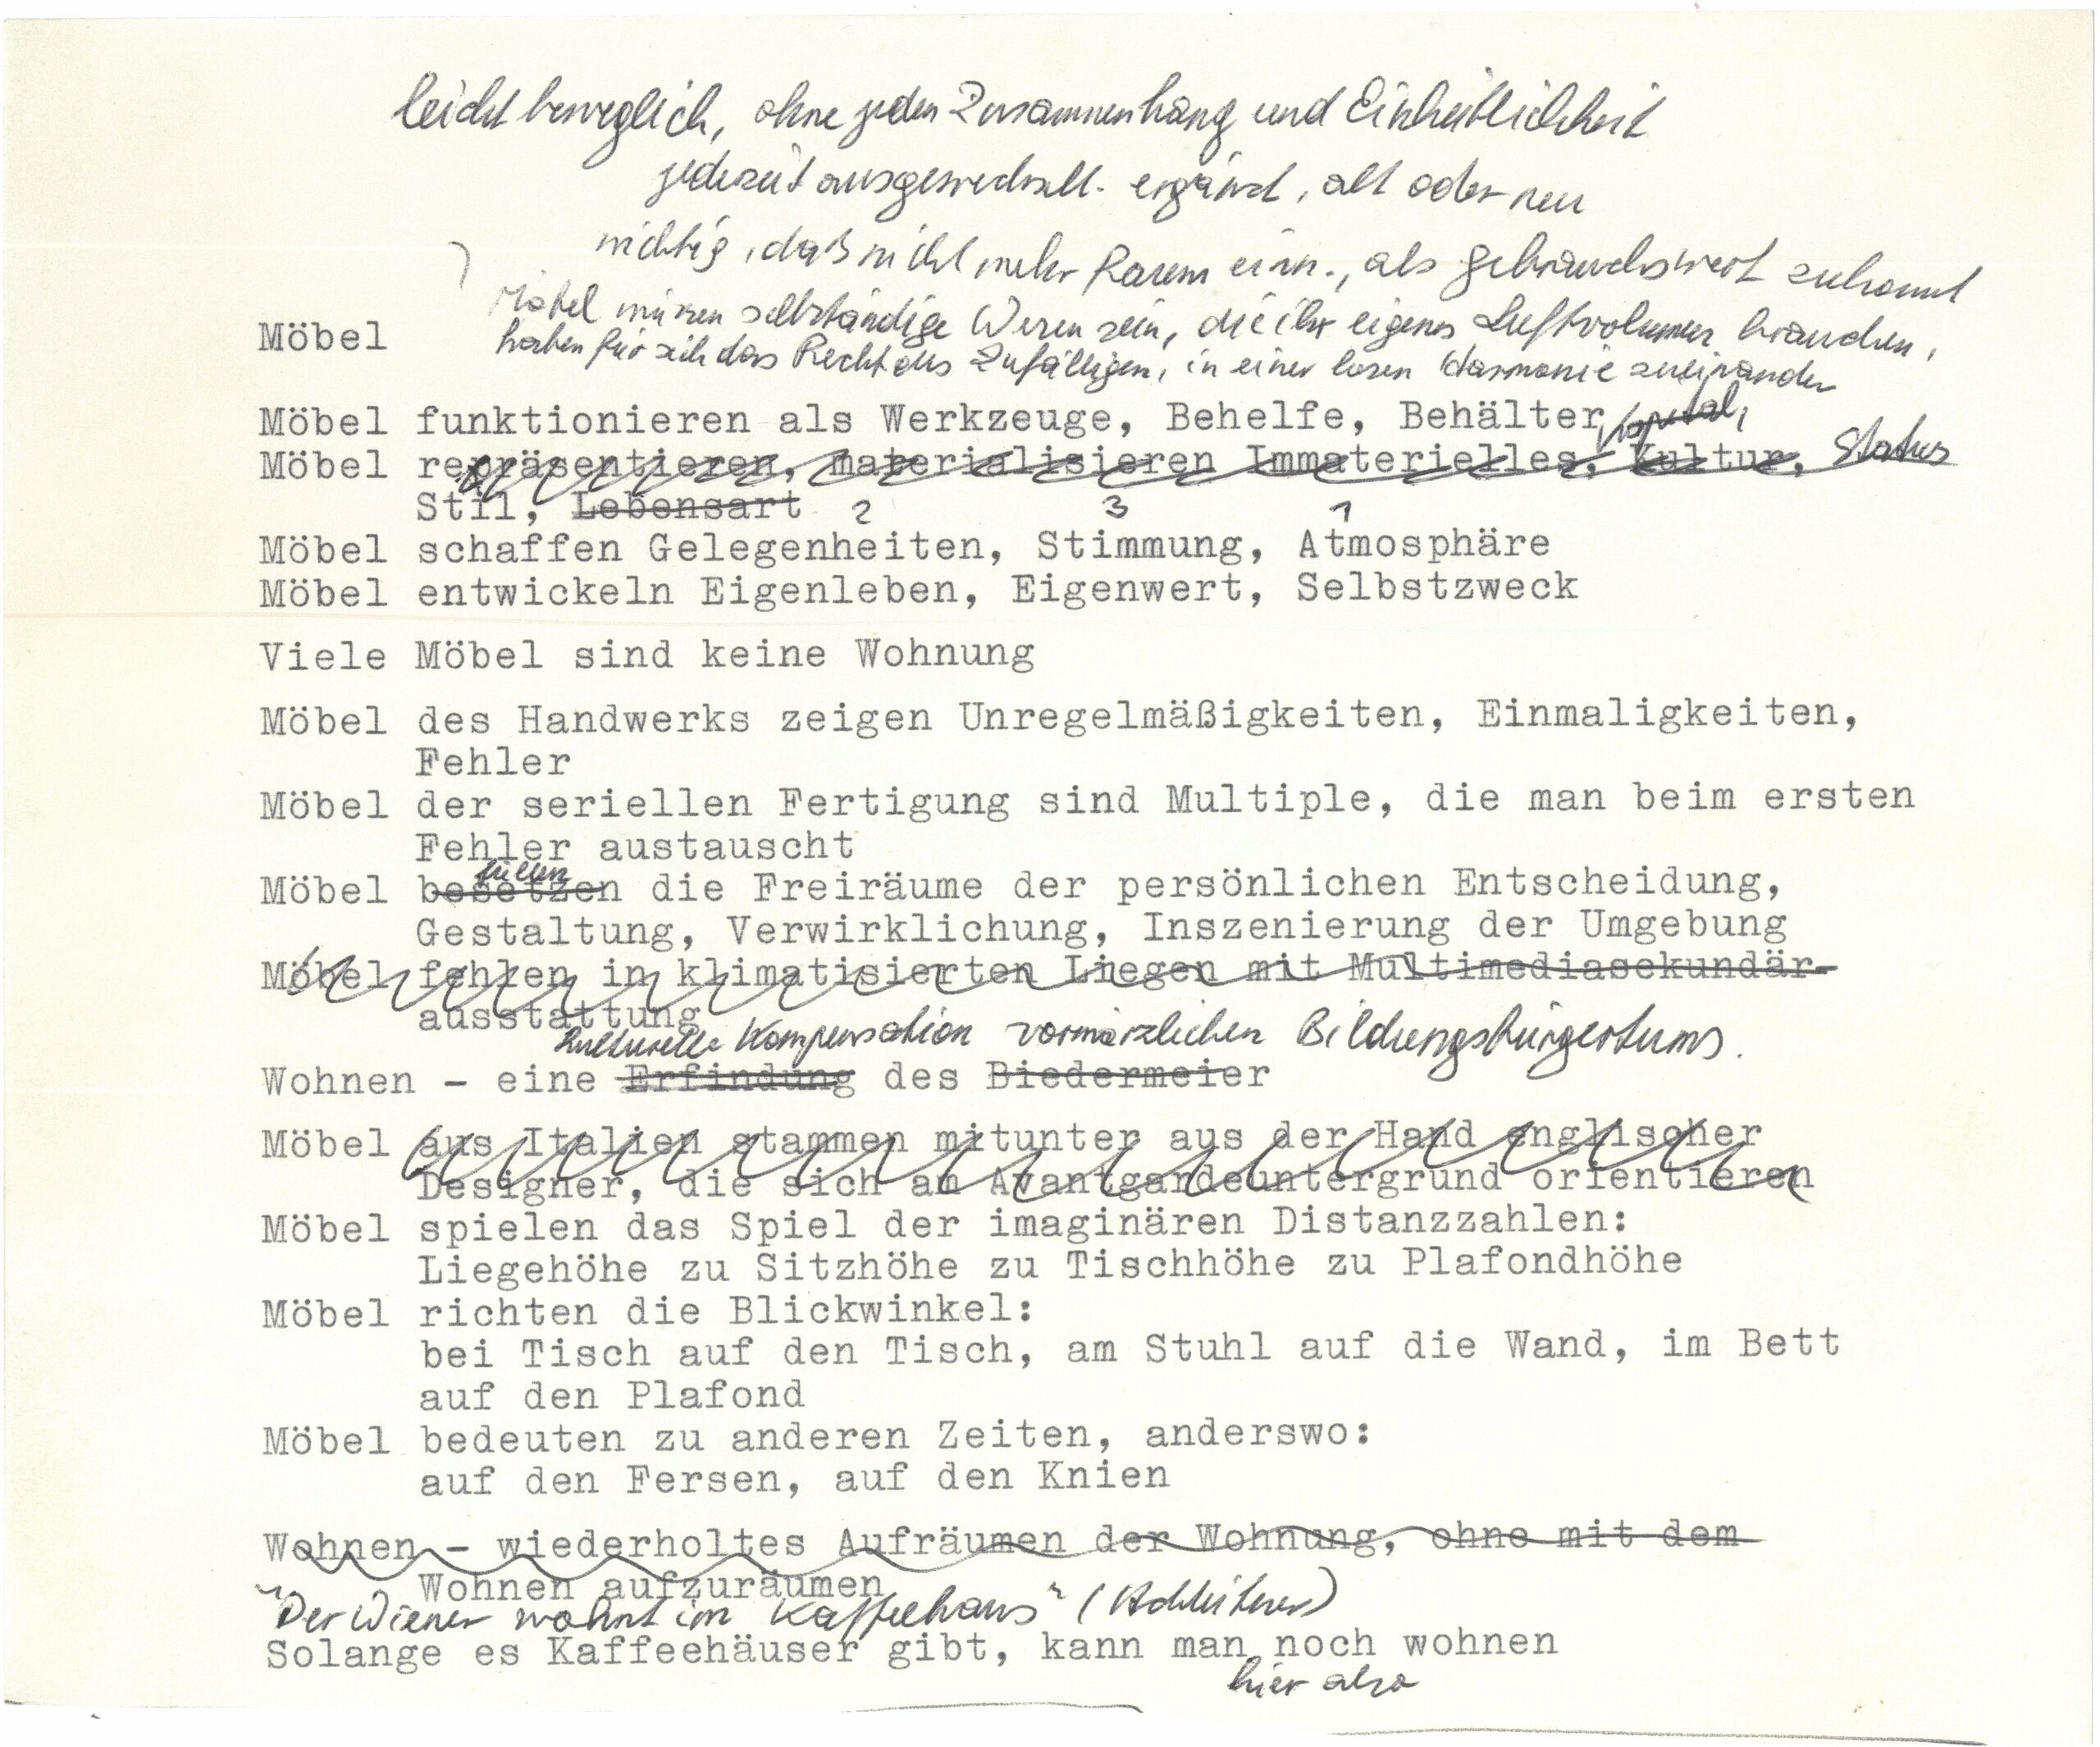 leicht beweglich, ohne jeden Zusammenhang und Einheitlichkeit
jederzeit ausgewechselt. ergänzt, alt oder neu
wichtig, daß nicht mehr Raum einn., als Gebrauchswert zukommt
Möbel müssen selbständige Wesen sein, die ihr eigenes Luftvolumen brauchen,
Möbel
haben für sich das Recht des Zufälligen, in einer losen Harmonie zueinander
Möbel funktionieren als Werkzeuge, Behelfe, Behälter,
Möbel repräsentieren, materialisieren Immaterielles, Kultur, Status
Stil, Lebensart
2 3 1
Möbel schaffen Gelegenheiten, Stimmung, Atmosphäre
Möbel entwickeln Eigenleben, Eigenwert, Selbstzweck
Viele Möbel sind keine Wohnung
Möbel des Handwerks zeigen Unregelmäßigkeiten, Einmaligkeiten,
Fehler
Möbel der seriellen Fertigung sind Multiple, die man beim ersten
Fehler austauscht
füllen
Möbel besetzen die Freiräume der persönlichen Entscheidung,
Gestaltung, Verwirklichung, Inszenierung der Umgebung
Möbel fehlen in klimatisierten Liegen mit Multimediasekundär-
ausstattung
kulturelle Kompensation vormärzlichen Bildungsbürgertums.
Wohnen - eine Erfindung des Biedermeier
Möbel aus Italien stammen mitunter aus der Hand englischer
Designer, die sich am Avantgardeuntergrund orientieren
Möbel spielen das Spiel der imaginären Distanzzahlen:
Liegehöhe zu Sitzhöhe zu Tischhöhe zu Plafondhöhe
Möbel richten die Blickwinkel:
bei Tisch auf den Tisch, am Stuhl auf die Wand, im Bett
auf den Plafond
Möbel bedeuten zu anderen Zeiten, anderswo:
auf den Fersen, auf den Knien
Wohnen - wiederholtes Aufräumen der Wohnung, ohne mit dem
Wohnen aufzuräumen
"Der Wiener wohnt im Kaffeehaus" (Achleitner)
Solange es Kaffeehäuser gibt, kann man noch wohnen
hier also